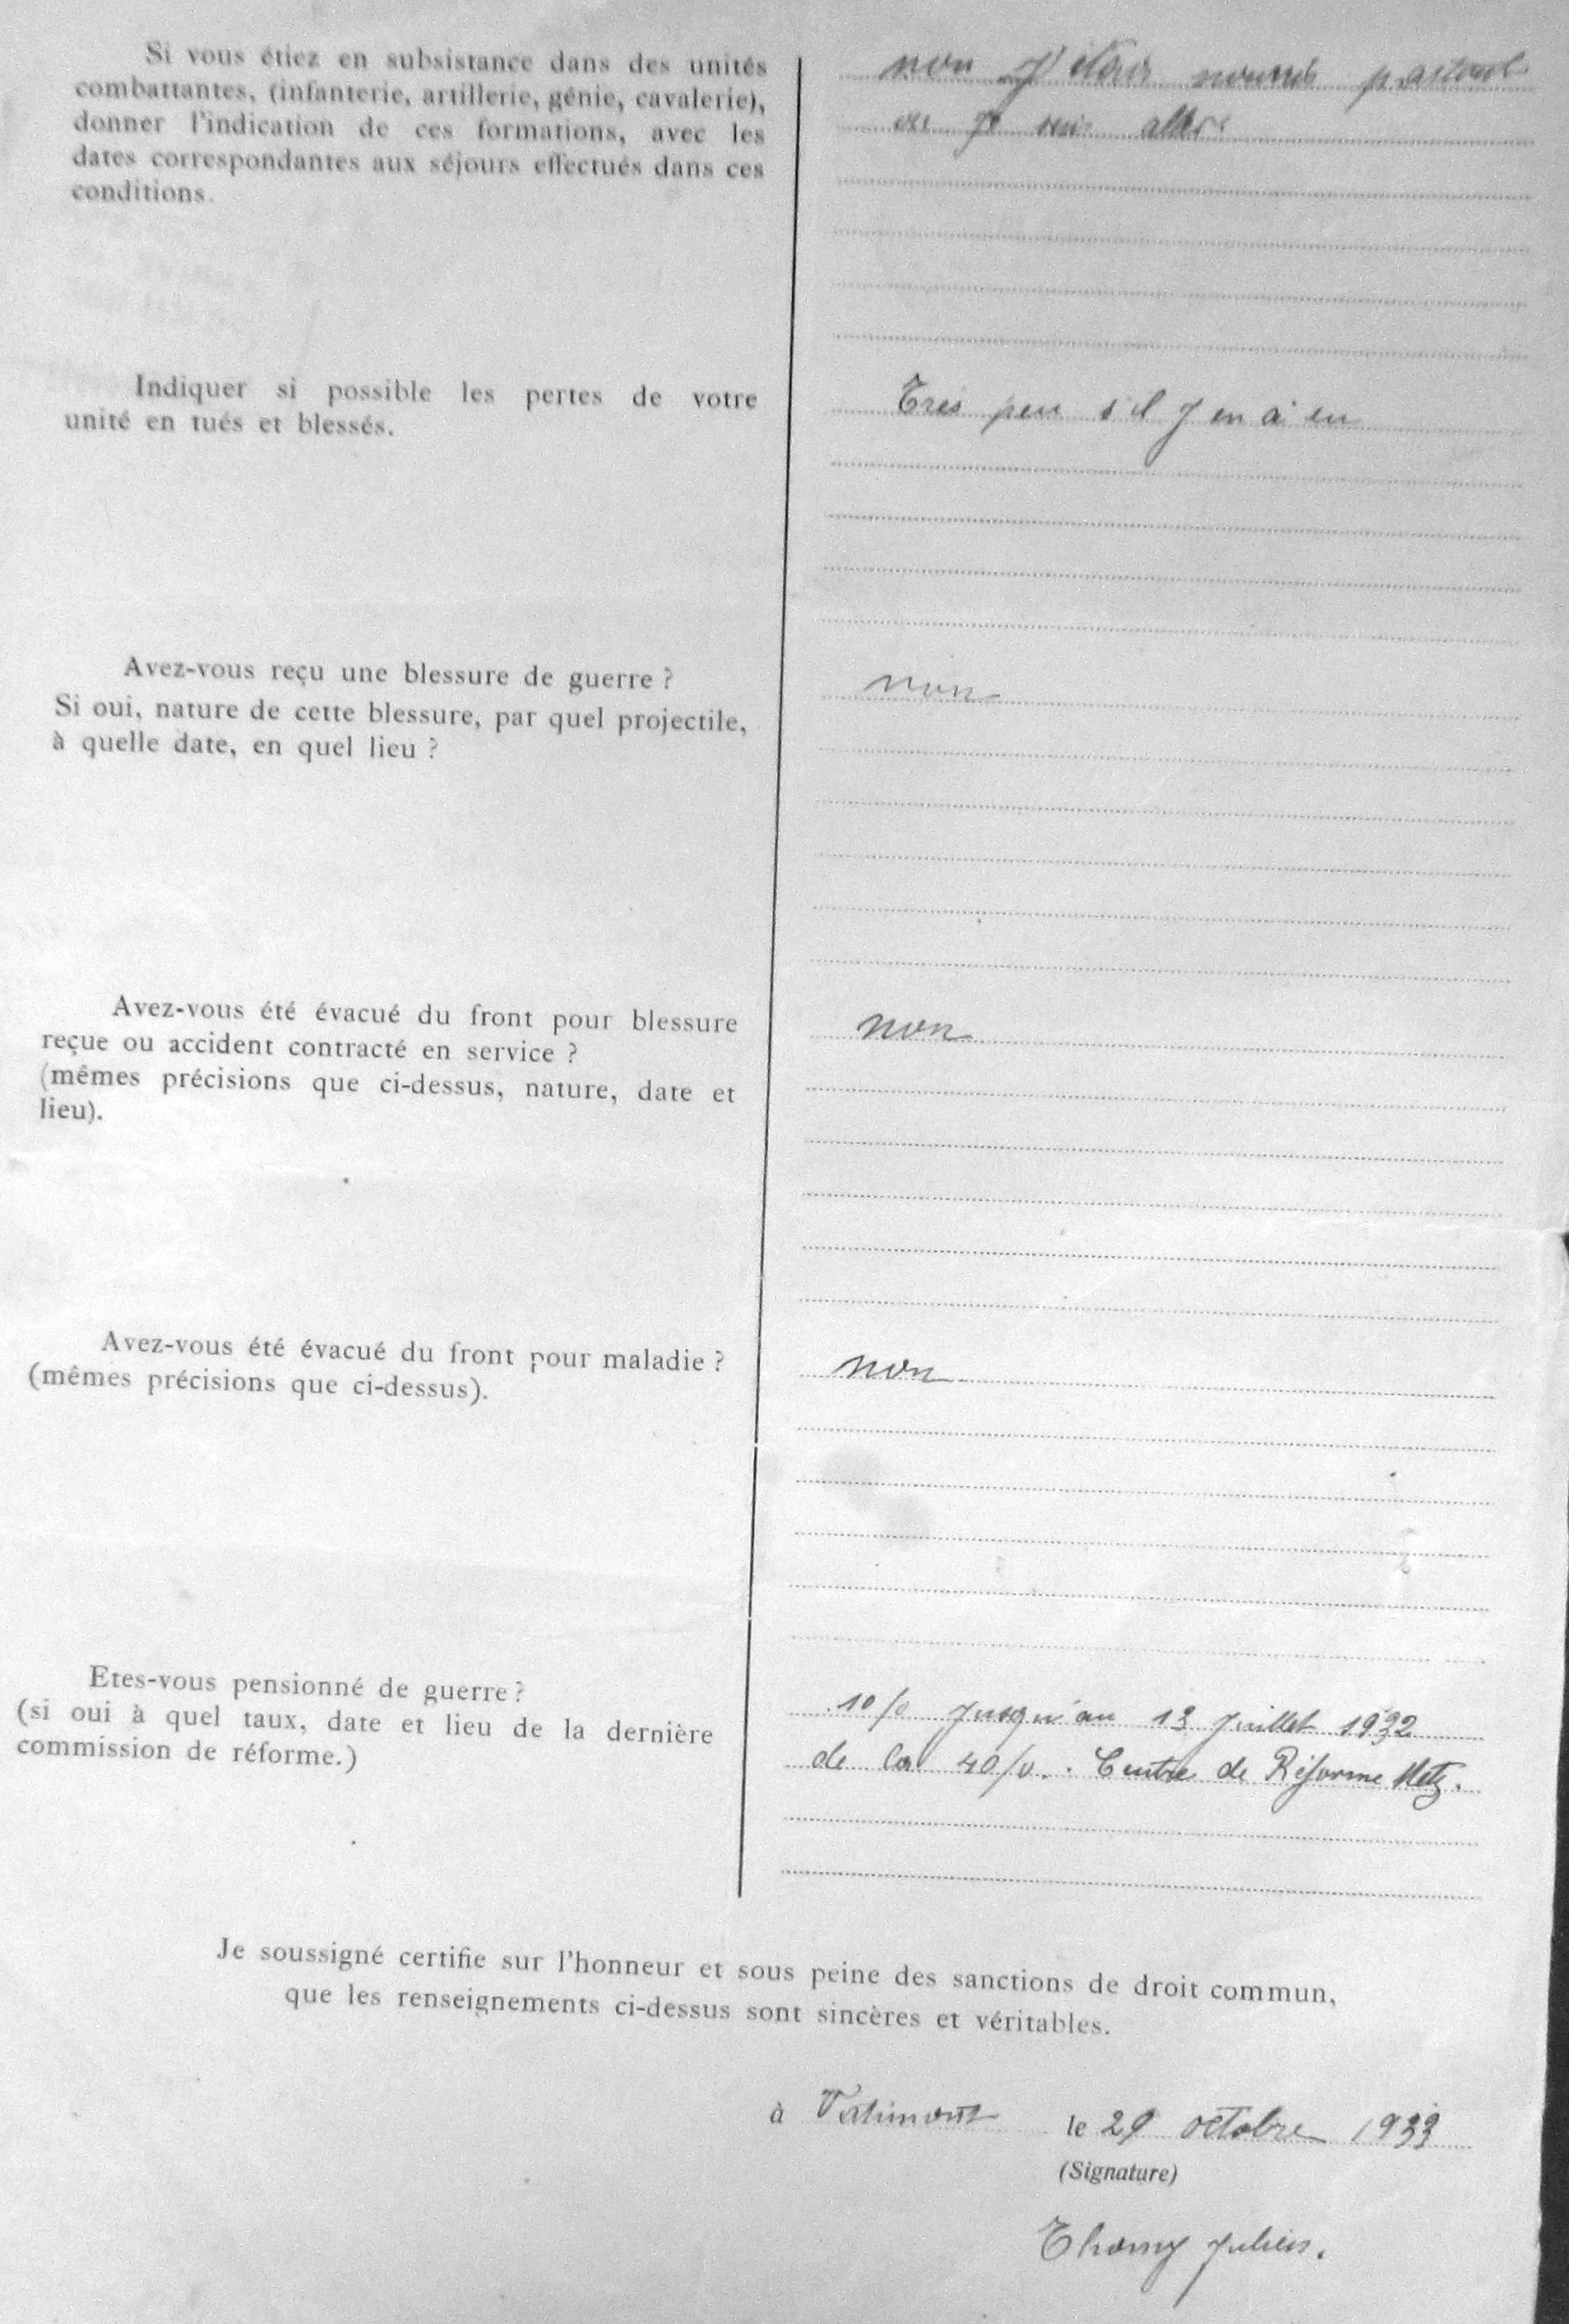 Si vous étiez en subsistance dans des unités
combattantes, (infanterie, artillerie, génie, cavalerie),
donner l'indication de ces formations, avec les
dates correspondantes aux séjours effectués dans ces
conditions.
non J'étais nourris partout
ou je suis aller
Indiquer si possible les pertes de votre
unité en tués et blessés.
Tres peu s'il y en à eu
Avez-vous reçu une blessure de guerre ?
Si oui, nature de cette blessure, par quel projectile,
à quelle date, en quel lieu ?
non
Avez-vous été évacué du front pour blessure
reçue ou accident contracté en service ?
(mêmes précisions que ci-dessus, nature, date et
lieu).
non
Avez-vous été évacué du front pour maladie ?
(mêmes précisions que ci-dessus).
non
Etes-vous pensionné de guerre ?
(si oui à quel taux, date et lieu de la dernière
commission de réforme.)
10/0 jusqu'au 13 Juillet 1932
de la 40/0. Centre de Réforme Metz.
Je soussigné certifie sur l'honneur et sous peine des sanctions de droit commun,
que les renseignements ci-dessus sont sincères et véritables.
à Vatimont le 29 octobre 1933
(Signature)
Thomy Julien.